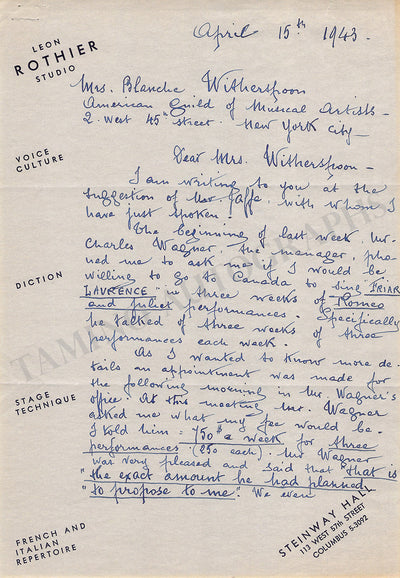 LEON
ROTHIER
STUDIO
April 15th 1943.
Mrs. Blanche Witherspoon
American Guild of Musical Artists -
2. West 45th street. New York City -
VOICE
CULTURE
Dear Mrs. Witherspoon -
I am writing to you at the
suggestion of Jaffe. with whom I
have just spoken!
The beginning of last week. Mr.
Charles Wagner, the manager, pho-
ned me to ask me if I would be
DICTION
willing to go to Canada to sing FRIAR
LAURENCE in three weeks of Romeo
and Juliet performances. Specifically
he talked of three weeks of three
performances each week.
As I wanted to know more de-
tails an appointment was made for
the following morning in Mr Wagner's
STAGE
TECHNIQUE
office. At this meeting Mr. Wagner
asked me what my fee would be.
I told him = 750$ a week for three
performances. (250 each). Mr Wagner
was very pleased and said that "that is
"the exact amount he had planned
"to propose to me". We even
FRENCH AND
ITALIAN
REPERTOIRE
STEINWAY HALL
113 WEST 57th STREET
COLUMBUS 5-3092
TAMINO AUTOGRAPHS